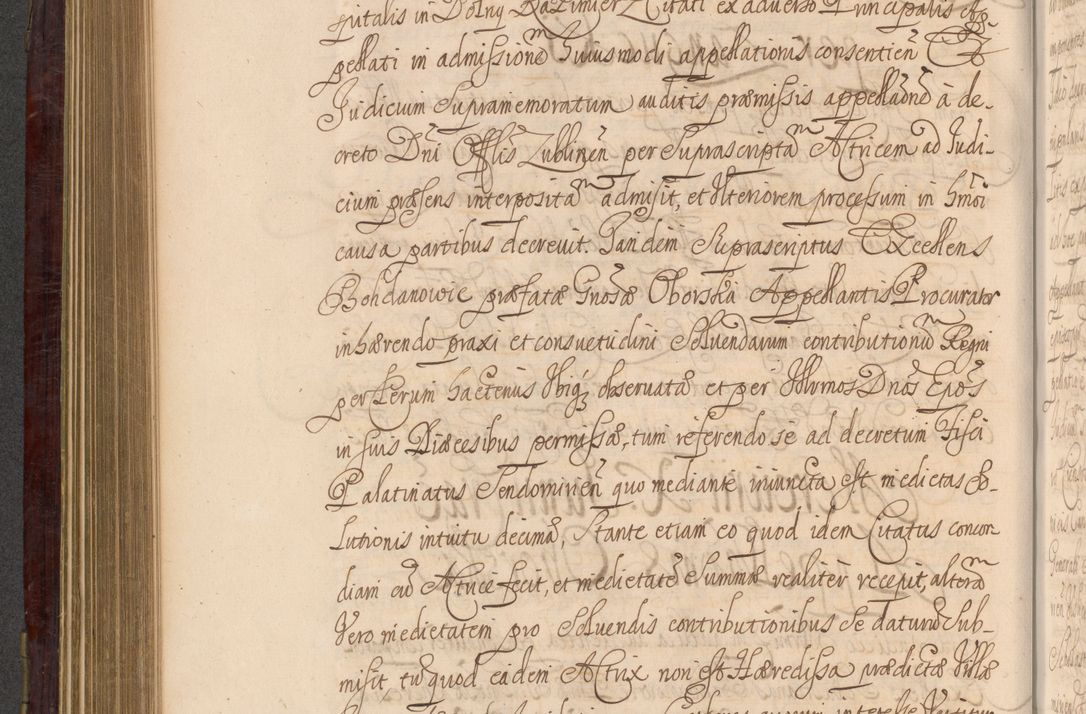 pitalis in Dolny Kazimier Citati ex adverso Principalis Ap-
pellati in admissionẽ huiusmodi appellationis consentień Et
Judicium supramemoratum auditis præmissis appellãonẽ à de-
creto Dñi Offlis Lublineñ per suprascriptã Actricem ad Judi-
cium præsens interpositã admisit, et Ulteriorem processum in hmõi
causa partibus decrevit. Tandem Suprascriptus Excellens
Bohdanowic præfatæ Gnosæ Oborska Appellantis Procurator
inhærendo praxi et consvetudini Solvendarum contributionũ Regni
per Clerum hactenus Ubiq; observatæ et per Illvmos Dnos Epõs
in suis Diæcesibus permissæ, tum referendo se ad decretum Fisci
Palatinatus Sendomirień quo mediante iniuncta est medietas So-
lutionis intuitu decimæ, Stante etiam eo quod idem Citatus concor
diam cũ Actrice fecit, et medietatẽ Summæ realiter recepit, alterã
Vero medietatem pro Solvendis contributionibus se daturũ Sub-
misit tũ quod eadem Actrix non est Hæredissa prædictæ Villæ